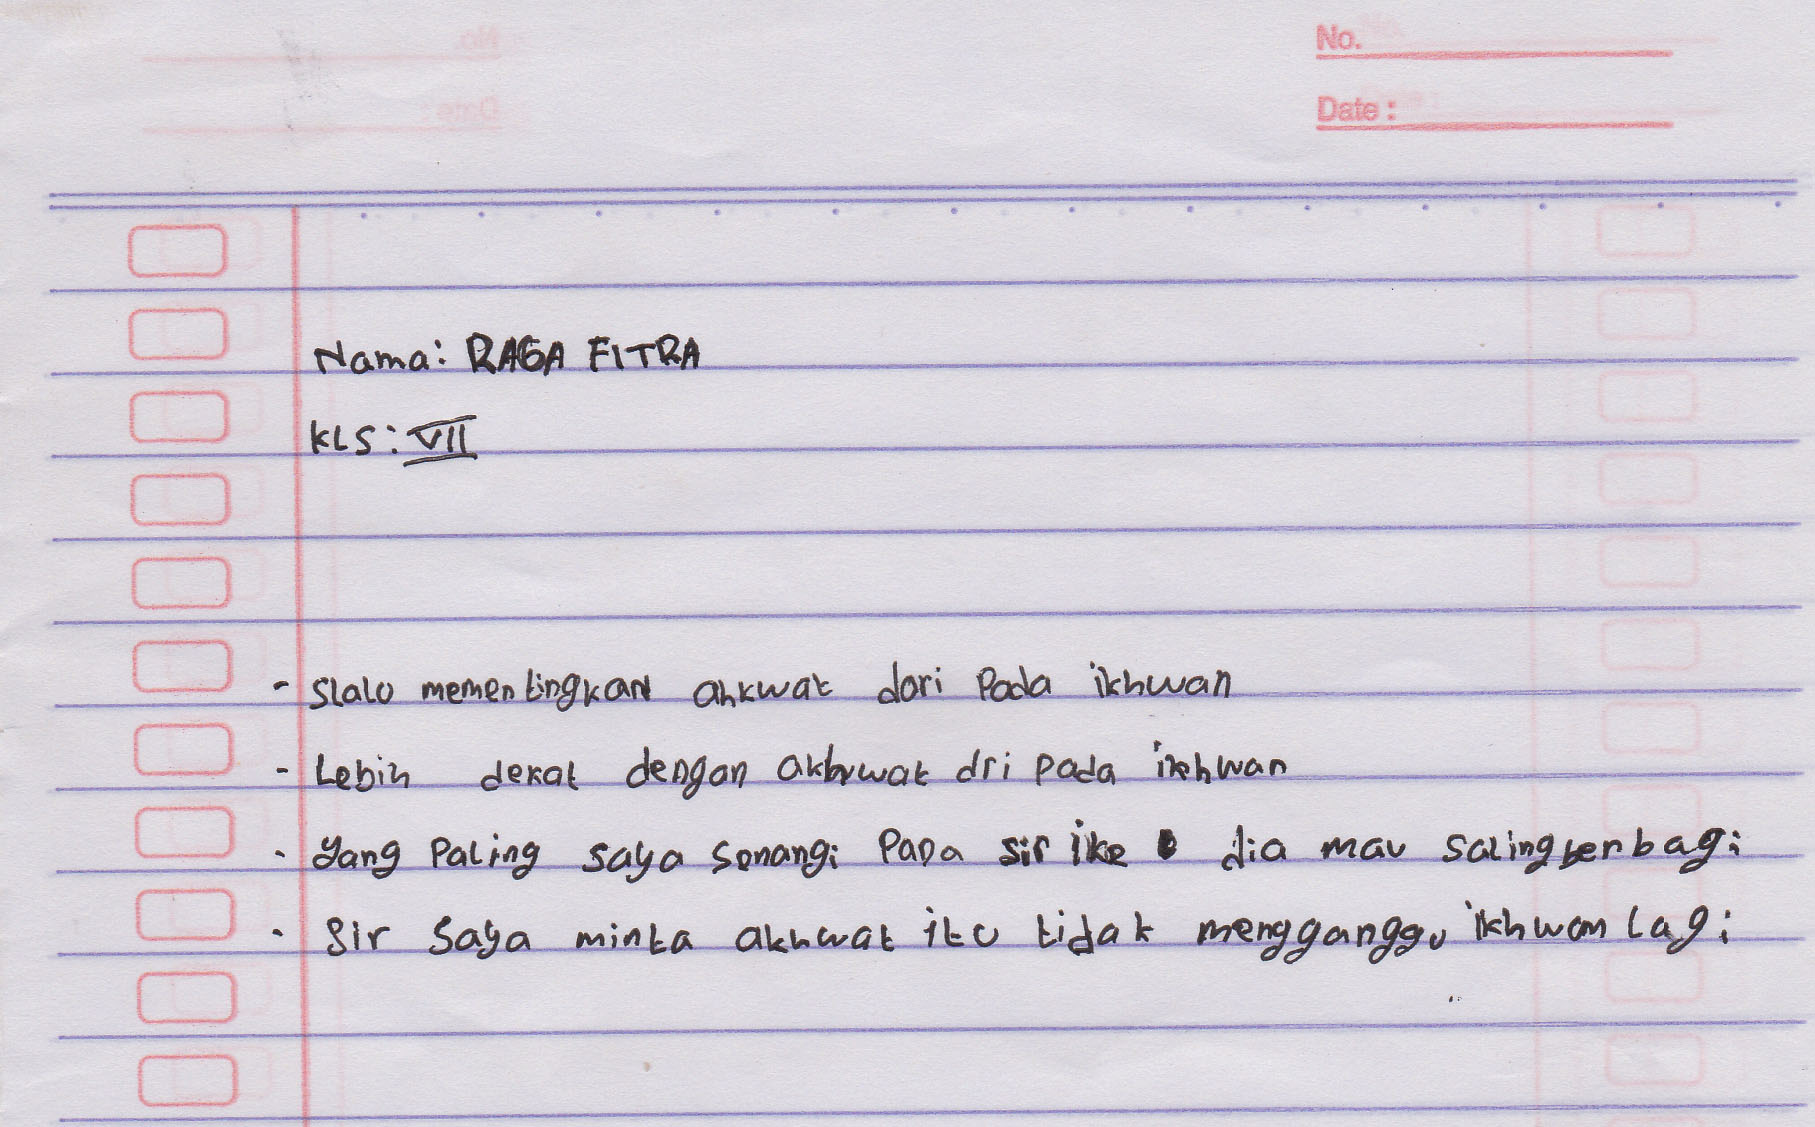 No.
Date :
Nama: RAGA FITRA
KLS: VII
- slalu mementingkan ahkwat dari pada ikhwan
- Lebih dekat dengan akhwat dri pada ikhwan
- yang paling saya senangi pada sir ike dia mau saling berbagi
- Sir saya minta akhwat itu tidak mengganggu ikhwan lagi